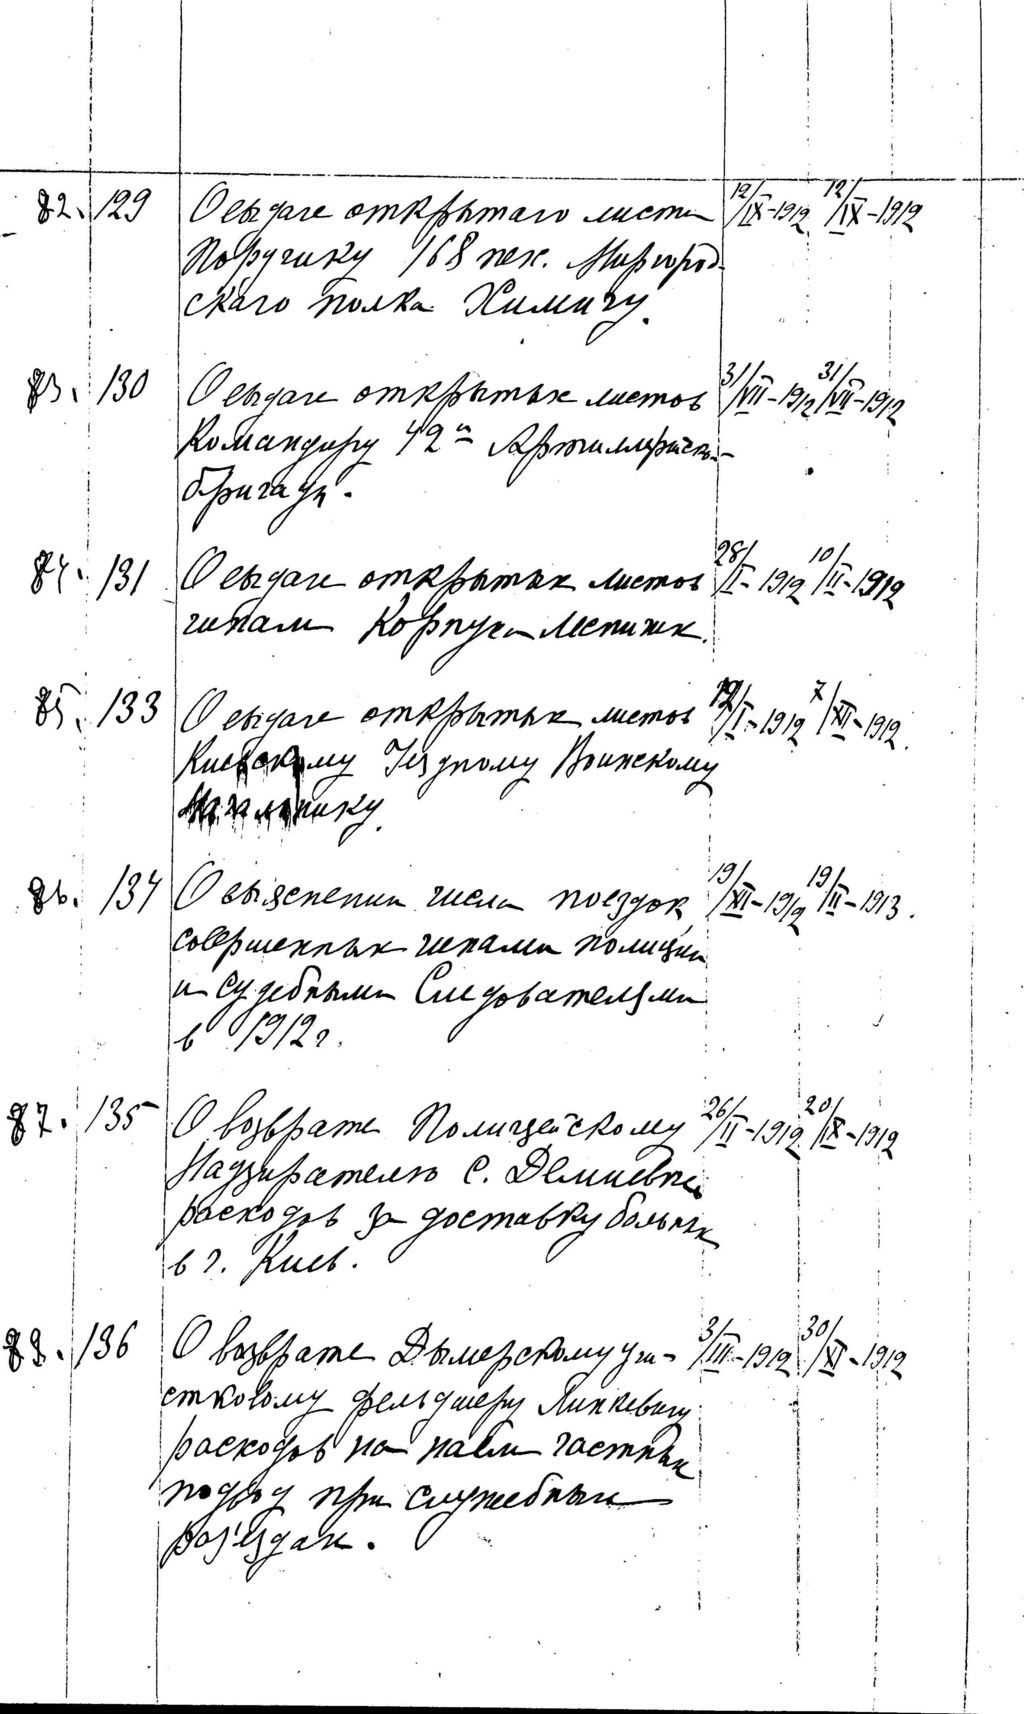 82. 129 О выдаче открытаго листа 12/IX-1912 12/IX-1912
Поручику 168 пех. Миргород-
скаго полка Химичу.
83. 130 О выдаче открытых листов 31/VII-1912 31/VII-1912
Командиру 42й Артиллерийской
бригады.
84. 131 О выдаче открытых листов 28/I-1912 10/II-1912
чинам Корпуса Лесничих.
85. 133 О выдаче открытых листов /I-1912 7/XI-1912.
Киевскому Уездному Воинскому
Начальнику.
86. 134 О выяснении числа поездок, 19/XI-1912 19/II-1913.
совершенных чинами полиции
и Судебными Следователями
в 1912 г.
87. 135 О возврате Полицейскому 26/II-1912 20/IX-1912
Надзирателю с. Демиевки
расходов за доставку больных
в г. Киев.
88. 136 О возврате Дымерскому уча- 3/III-1912 30/XI-1912
стковому фельдшеру Линкевичу
расходов на наем частных
подвод при служебных
раз'ездах.